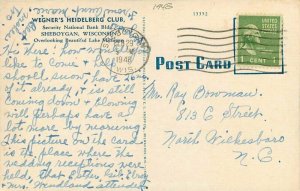 1948
WEGNER'S HEIDELBERG CLUB,
Security National Bank Bldg.
SHEBOYGAN, WISCONSIN
Overlooking Beautiful Lake Michigan
13392
1948
WIS
POST CARD
1 CENT 1
His here! how would you
like to come & help
shovel snow, have
of it already, & is still
coming down & blowing
will perhaps have a
lot more by morning
This picture on the card
is the place where the
wedding receptions were
held, that
& Mrs. attended
Mr. Ray Bowman
813 C Street
North Wilkesboro
N. C.